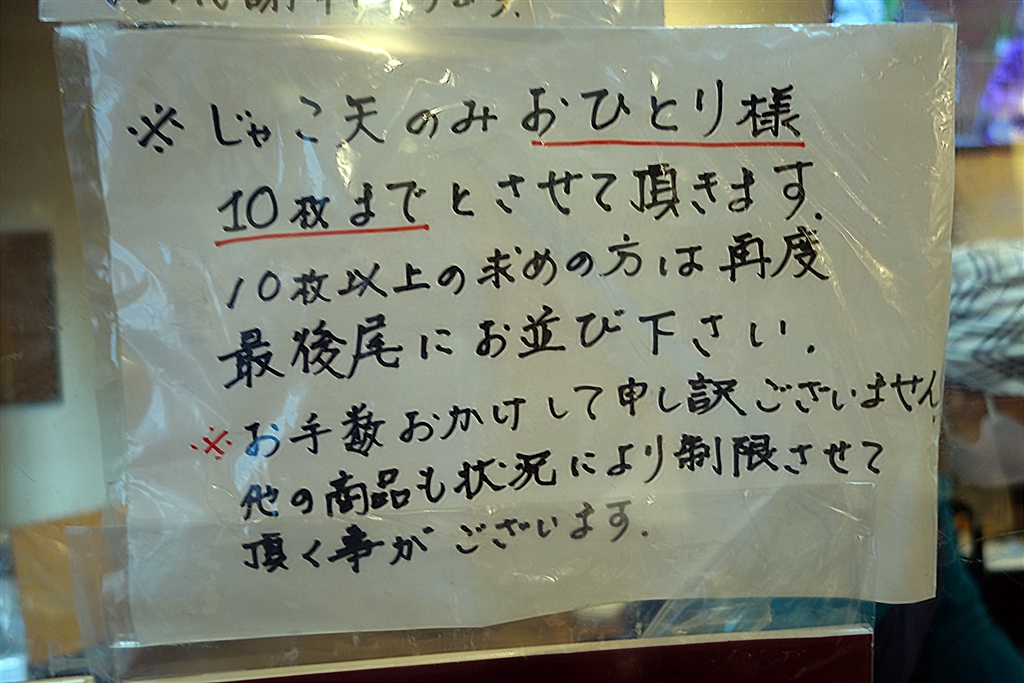 ※じゃこ天のみおひとり様
10枚までとさせて頂きます.
10枚以上の求めの方は再度
最後尾にお並び下さい.
※お手数おかけして申し訳ございません
他の商品も状況により制限させて
頂く事がございます.